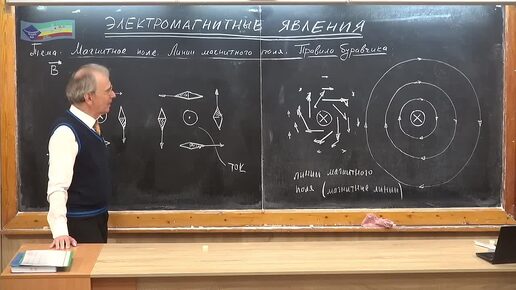 ЭЛЕКТРОМАГНИТНЫЕ ЯВЛЕНИЯ
Тема. Магнитное поле. Линии магнитного поля. Правило буравчика
B
ТОК
линии магнитного
поля (магнитные линии)